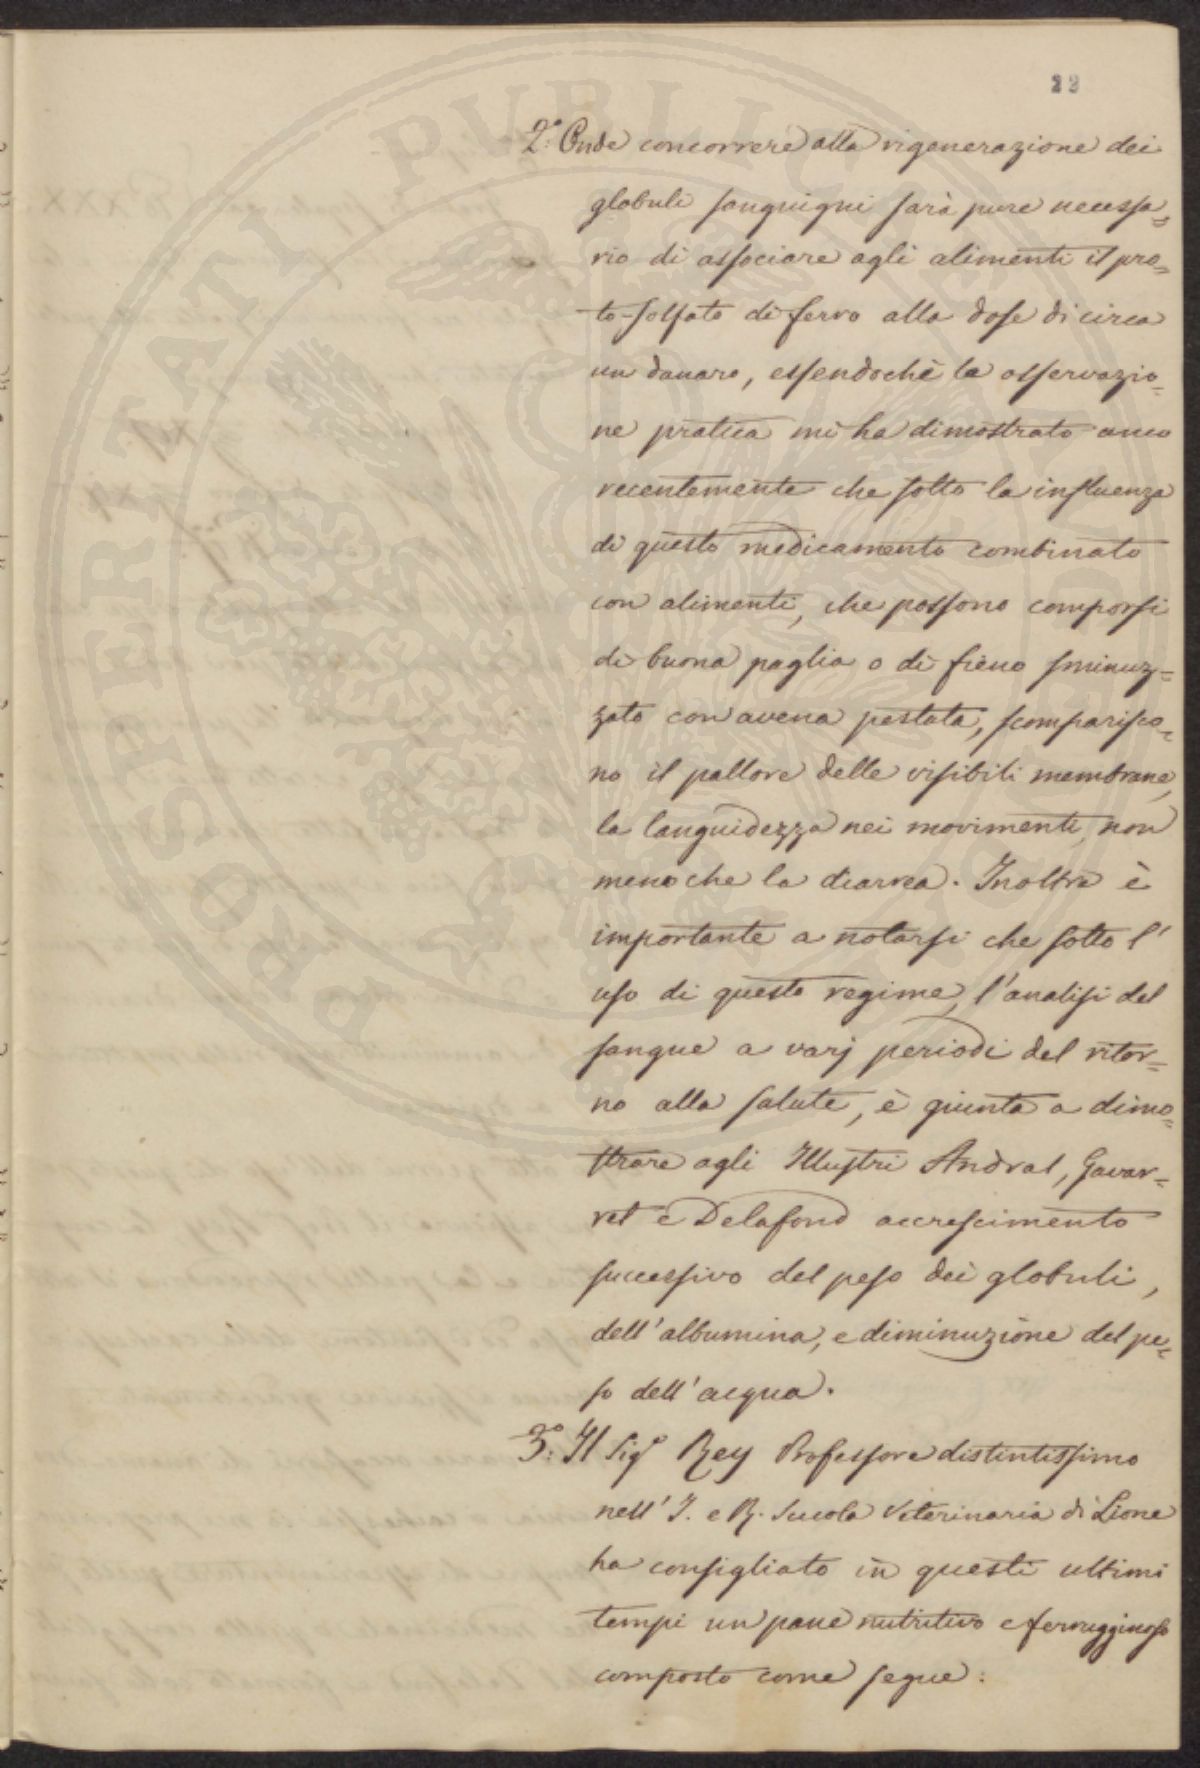 22
2.° Onde concorrere alla rigenerazione dei
globuli sanguigni sarà pure necessa=
rio di associare agli alimenti il pro=
to-solfato di ferro alla dose di circa
un danaro, essendochè la osservazio=
ne pratica mi ha dimostrato anco
recentemente che sotto la influenza
di questo medicamento combinato
con alimenti, che possono comporsi
di buona paglia o di fieno sminuz=
zato con avena pestata, scomparisco=
no il pallore delle visibili membrane,
la languidezza nei movimenti, non
meno che la diarrea. Inoltre è
importante a notarsi che sotto l'
uso di questo regime, l'analisi del
sangue a varj periodi del ritor=
no alla salute, è giunta a dimo=
strare agli Illustri Andral, Gavar=
ret e Delafond accrescimento
successivo del peso dei globuli,
dell'albumina, e diminuzione del pe=
so dell'acqua.
3.° Il Sig.r Rey Professore distintissimo
nell' I. e R. Scuola Veterinaria di Lione
ha consigliato in questi ultimi
tempi un pane nutritivo e ferrugginoso
composto come segue:
PROSPERITATI PUBLICAE